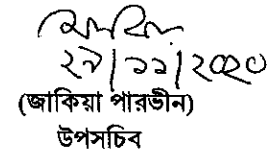 ২৯/১১/২০২০
(জাকিয়া পারভীন)
উপসচিব